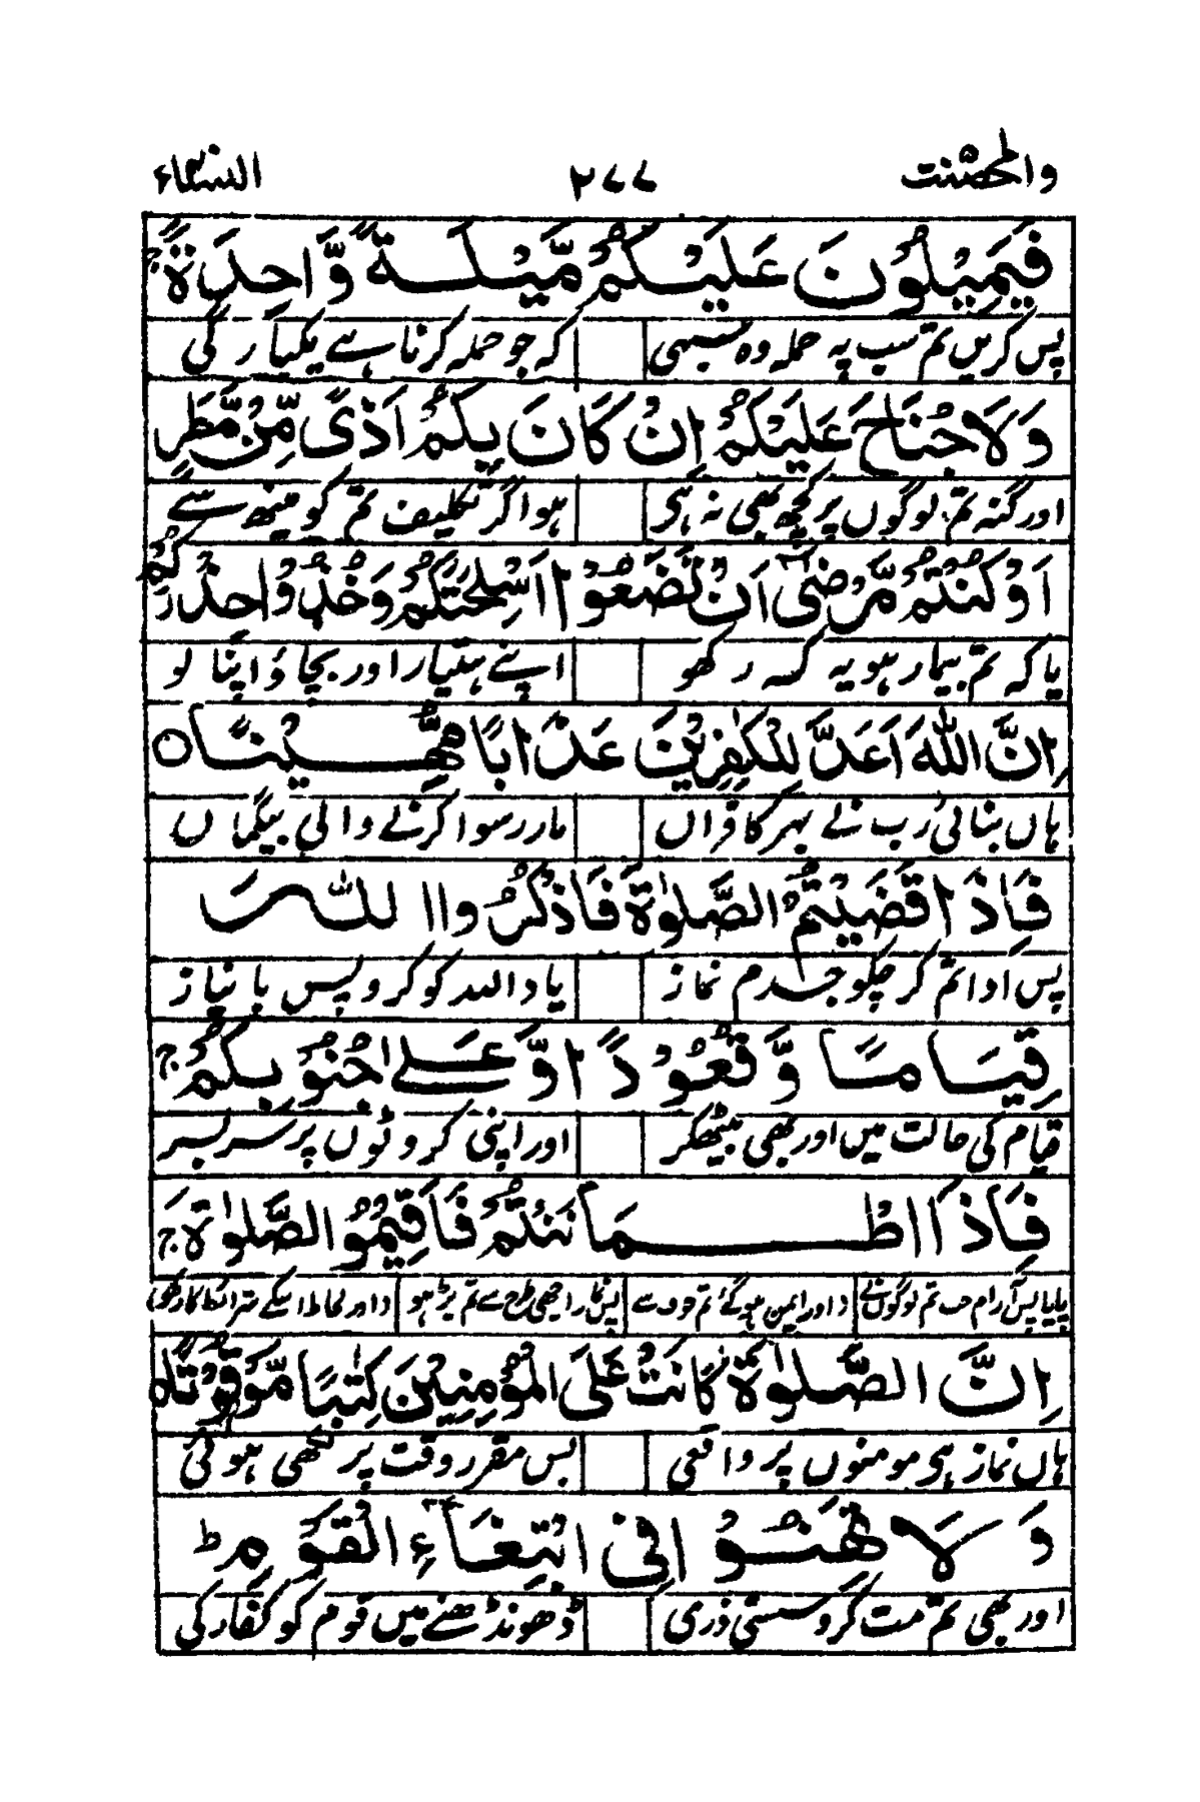 والمحصنت ۲۷۷ النسآء
فَيَمِيْلُوْنَ عَلَيْكُمْ مَّيْلَةً وَّاحِدَةً ؕ ج
پس کریں تم سب پہ حملہ وہ سبھی کہ جو حملہ کرنا ہے یکبارگی
وَلَا جُنَاحَ عَلَيْكُمْ اِنْ كَانَ بِكُمْ اَذًى مِّنْ مَّطَرٍ
اور گنہ تم لوگوں پر کچھ بھی نہ ہی ہو اگر تکلیف تم کو مینھ سے
اَوْ كُنْتُمْ مَّرْضٰٓى اَنْ تَضَعُوْٓا اَسْلِحَتَكُمْ وَخُذُوْا حِذْرَكُمْ
یا کہ تم بیمار ہو یہ کہ رکھو اپنے ہتیار اور بچاؤ اپنا لو
اِنَّ اللّٰهَ اَعَدَّ لِلْكٰفِرِيْنَ عَذَابًا مُّهِيْنًا ○
ہاں بنائی رب نے بہر کافراں مار رسوا کرنے والی بیگماں
فَاِذَا قَضَيْتُمُ الصَّلٰوةَ فَاذْكُرُوا اللّٰهَ
پس ادا تم کر چکو جسدم نماز یاد اللہ کو کرو پس با نیاز
قِيَامًا وَّقُعُوْدًا وَّعَلٰى جُنُوْبِكُمْ ج
قیام کی حالت میں اور بھی بیٹھکر اور اپنی کروٹوں پر سر بسر
فَاِذَا اطْمَاْنَنْتُمْ فَاَقِيْمُوا الصَّلٰوةَ ج
پایا پس آرام جب تم لوگوں نے (اور ایمن ہو گئے تم خوف سے پس نماز اچھی طرح سے تم پڑھو (اور لحاظ اسکے شرائط کا رکھو)
اِنَّ الصَّلٰوةَ كَانَتْ عَلَى الْمُؤْمِنِيْنَ كِتٰبًا مَّوْقُوْتًا ○
ہاں نماز ہی مومنوں پر واقعی بس مقرر وقت پر لکھی ہوئی
وَلَا تَهِنُوْا فِى ابْتِغَآءِ الْقَوْمِ ؕ
اور بھی تم مت کرو سستی ذری ڈھونڈھنے میں قوم کو کفار کی